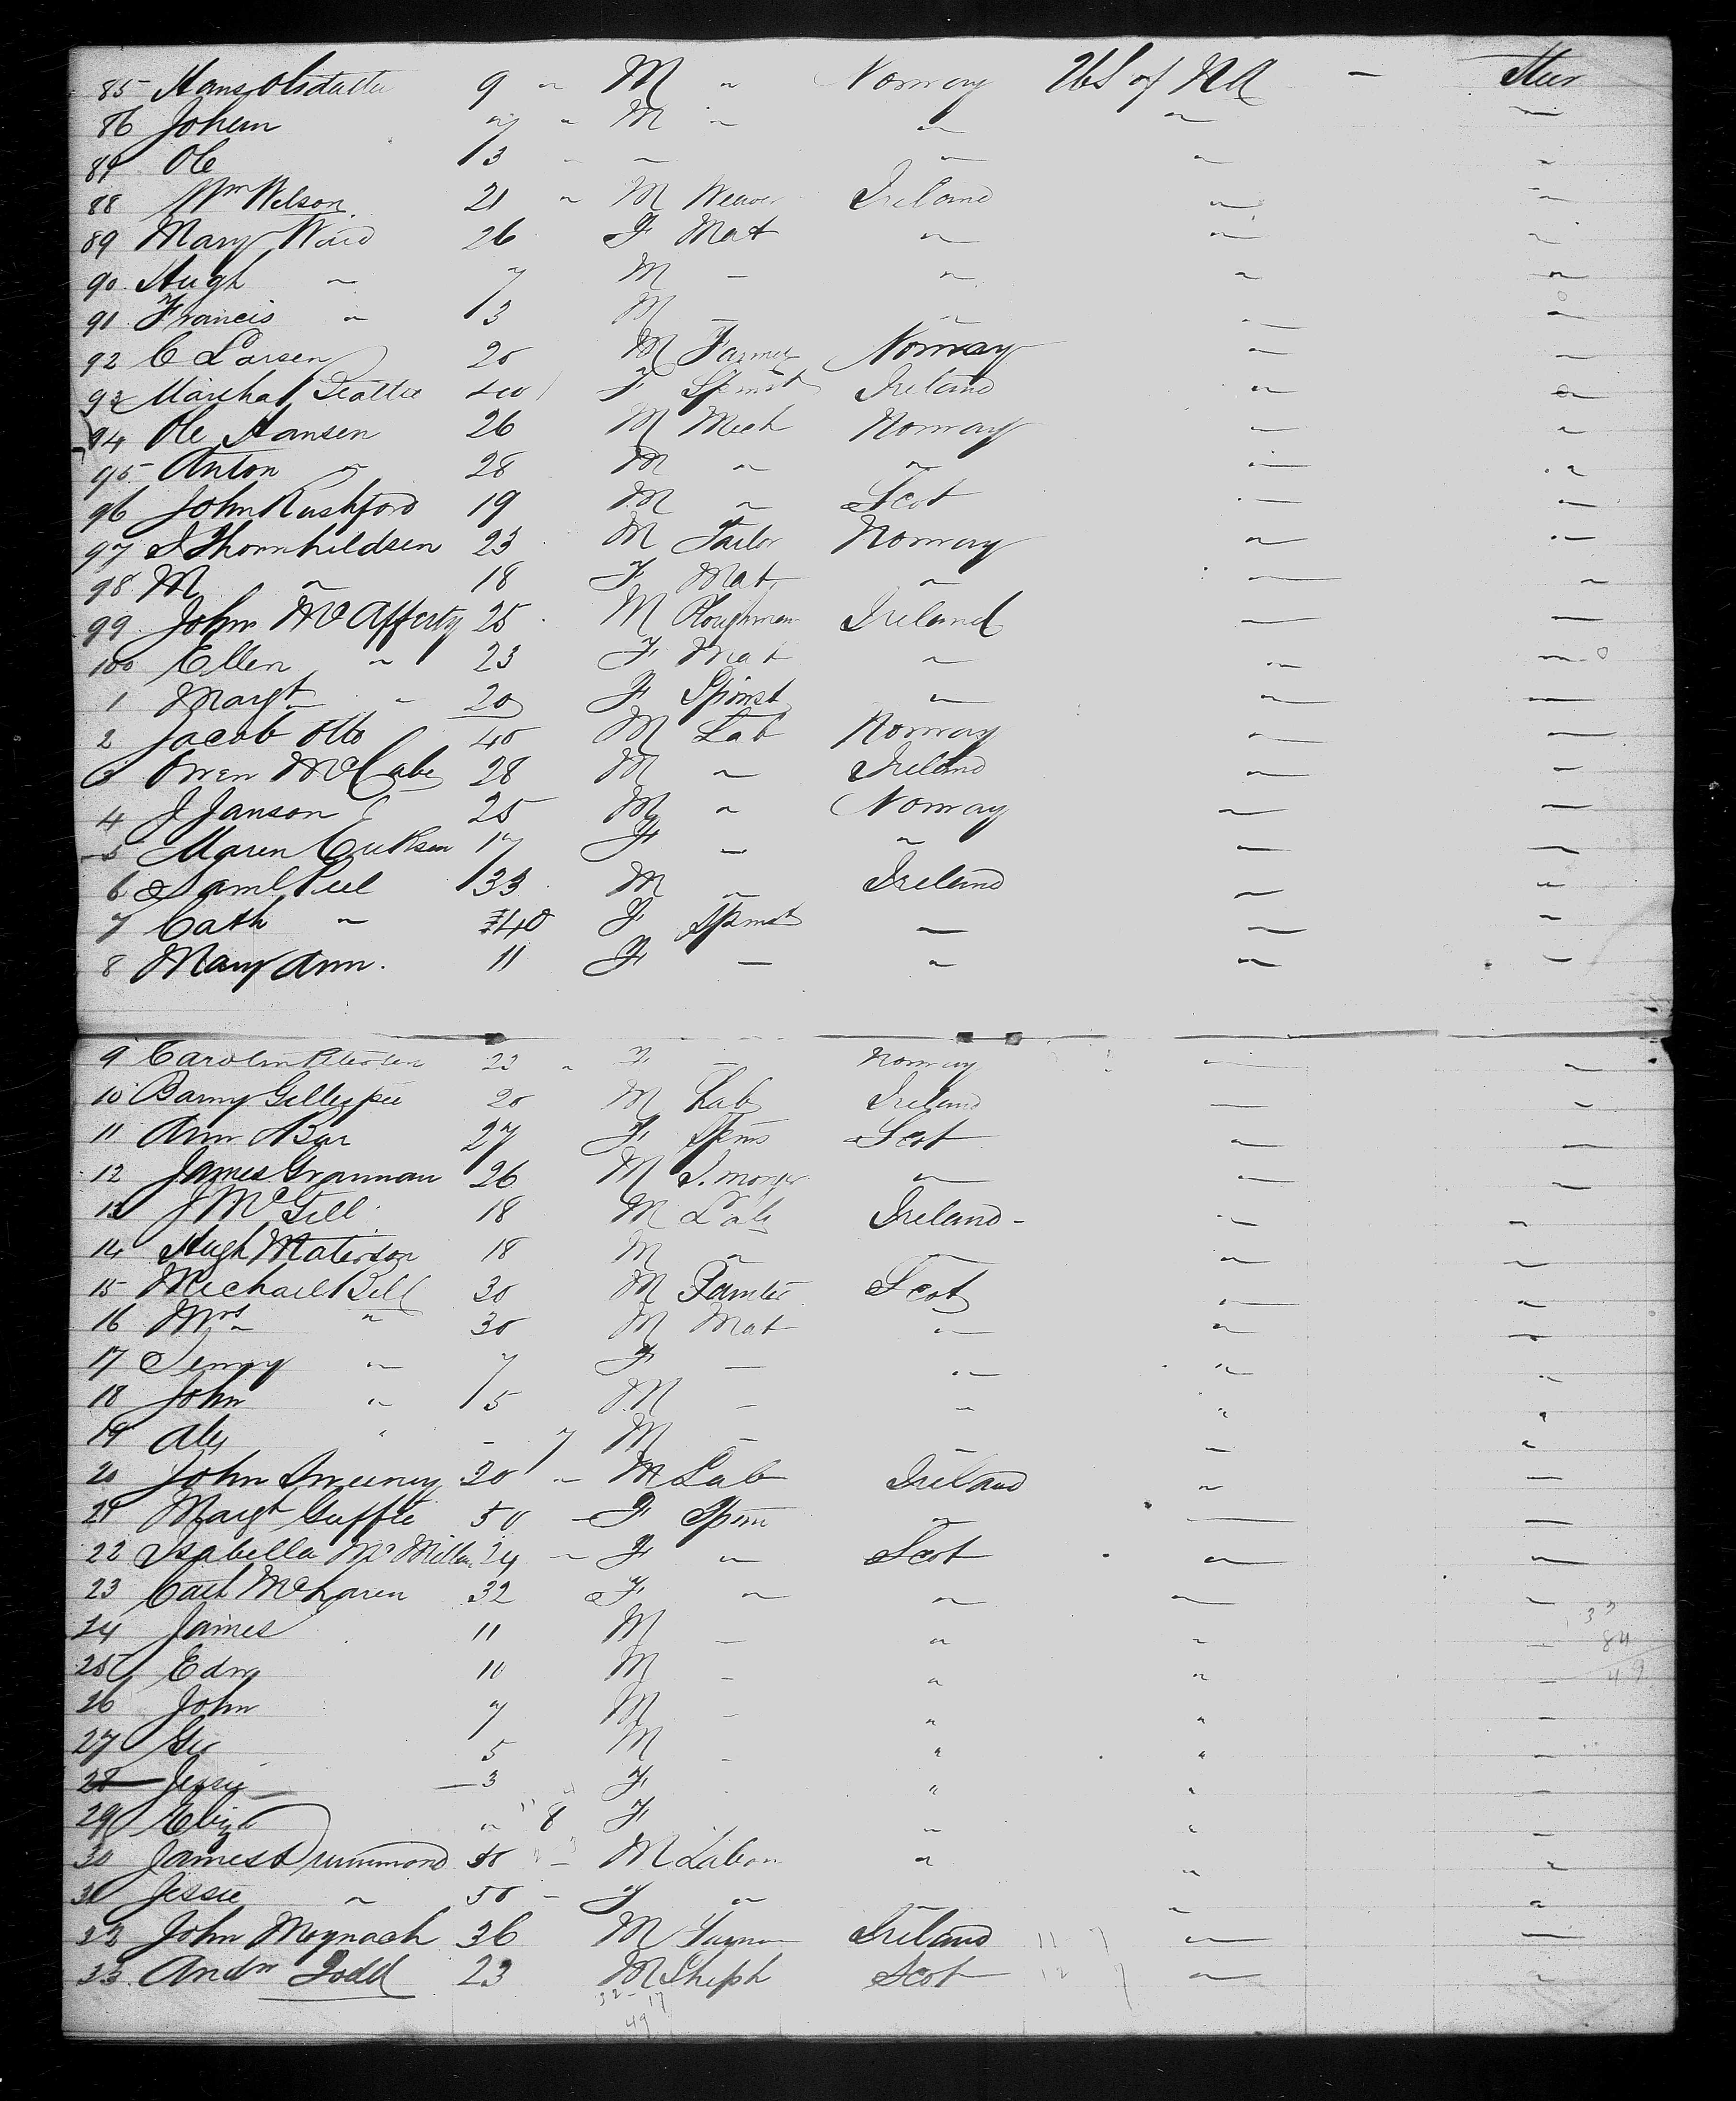 85 Hans Olsdatter 9 " M " Norway US of NA — Steer
86 Johan 7 " M " " " "
87 Ole 3 " " " " "
88 Wm Wilson 21 " M Weaver Ireland " "
89 Mary Ward 26 F Mat " " "
90 Hugh " 7 M — " " "
91 Francis " 3 M — " " "
92 C Larsen 20 M Farmer Norway " "
93 F Spinst Ireland " "
94 Ole Hansen 26 M Mech Norway " "
95 Anton " 28 M " " " "
96 John Rushford 19 M " Scot " "
97 Thornhildsen 23 M Tailor Norway " "
98 M " 18 F Mat " " "
99 John McAfferty 25 M Ploughman Ireland " "
100 Ellen " 23 F Mat " " "
1 Margt " 20 F Spinst " " "
2 Jacob Otto 40 M Lab Norway " "
3 Owen McCabe 28 M " Ireland " "
4 J Janson 25 M " Norway " "
5 Maren 17 F — " " "
6 Saml Peel 33 M " Ireland " "
7 Cath " 40 F Spinst " " "
8 Mary Ann 11 F — " " "
9 Carolin Petersen 22 " F — Norway " "
10 Barny Gillespie 20 M Lab Ireland " "
11 Ann 27 F Spins Scot " "
12 James Grannan 26 M " " "
13 J McGill 18 M Lab Ireland " "
14 Hugh 18 M " " " "
15 Michael Bell 30 M Scot " "
16 Mrs " 30 M Mat " " "
17 " 7 F — " " "
18 John " 5 M — " " "
19 Alex " - 7 M — " " "
20 John Sweeney 20 " M Lab Ireland " "
21 Margt Guffie 50 F Spin " " "
22 Isabella McMillan 24 " F " Scot " "
23 Cath McLaren 32 F " " " "
24 James 11 M — " " "
25 Edw 10 M — " " "
26 John 7 M — " " "
27 Geo 5 M — " " "
28 Jessie 3 F " "
29 Eliz " 8 F " " "
30 James Drummond 50 M Labor " " "
31 Jessie " 50 - F " " " "
32 John Moynach 36 M Ireland " "
33 Andw Todd 23 M Sheph Scot " "
32 - 17
49